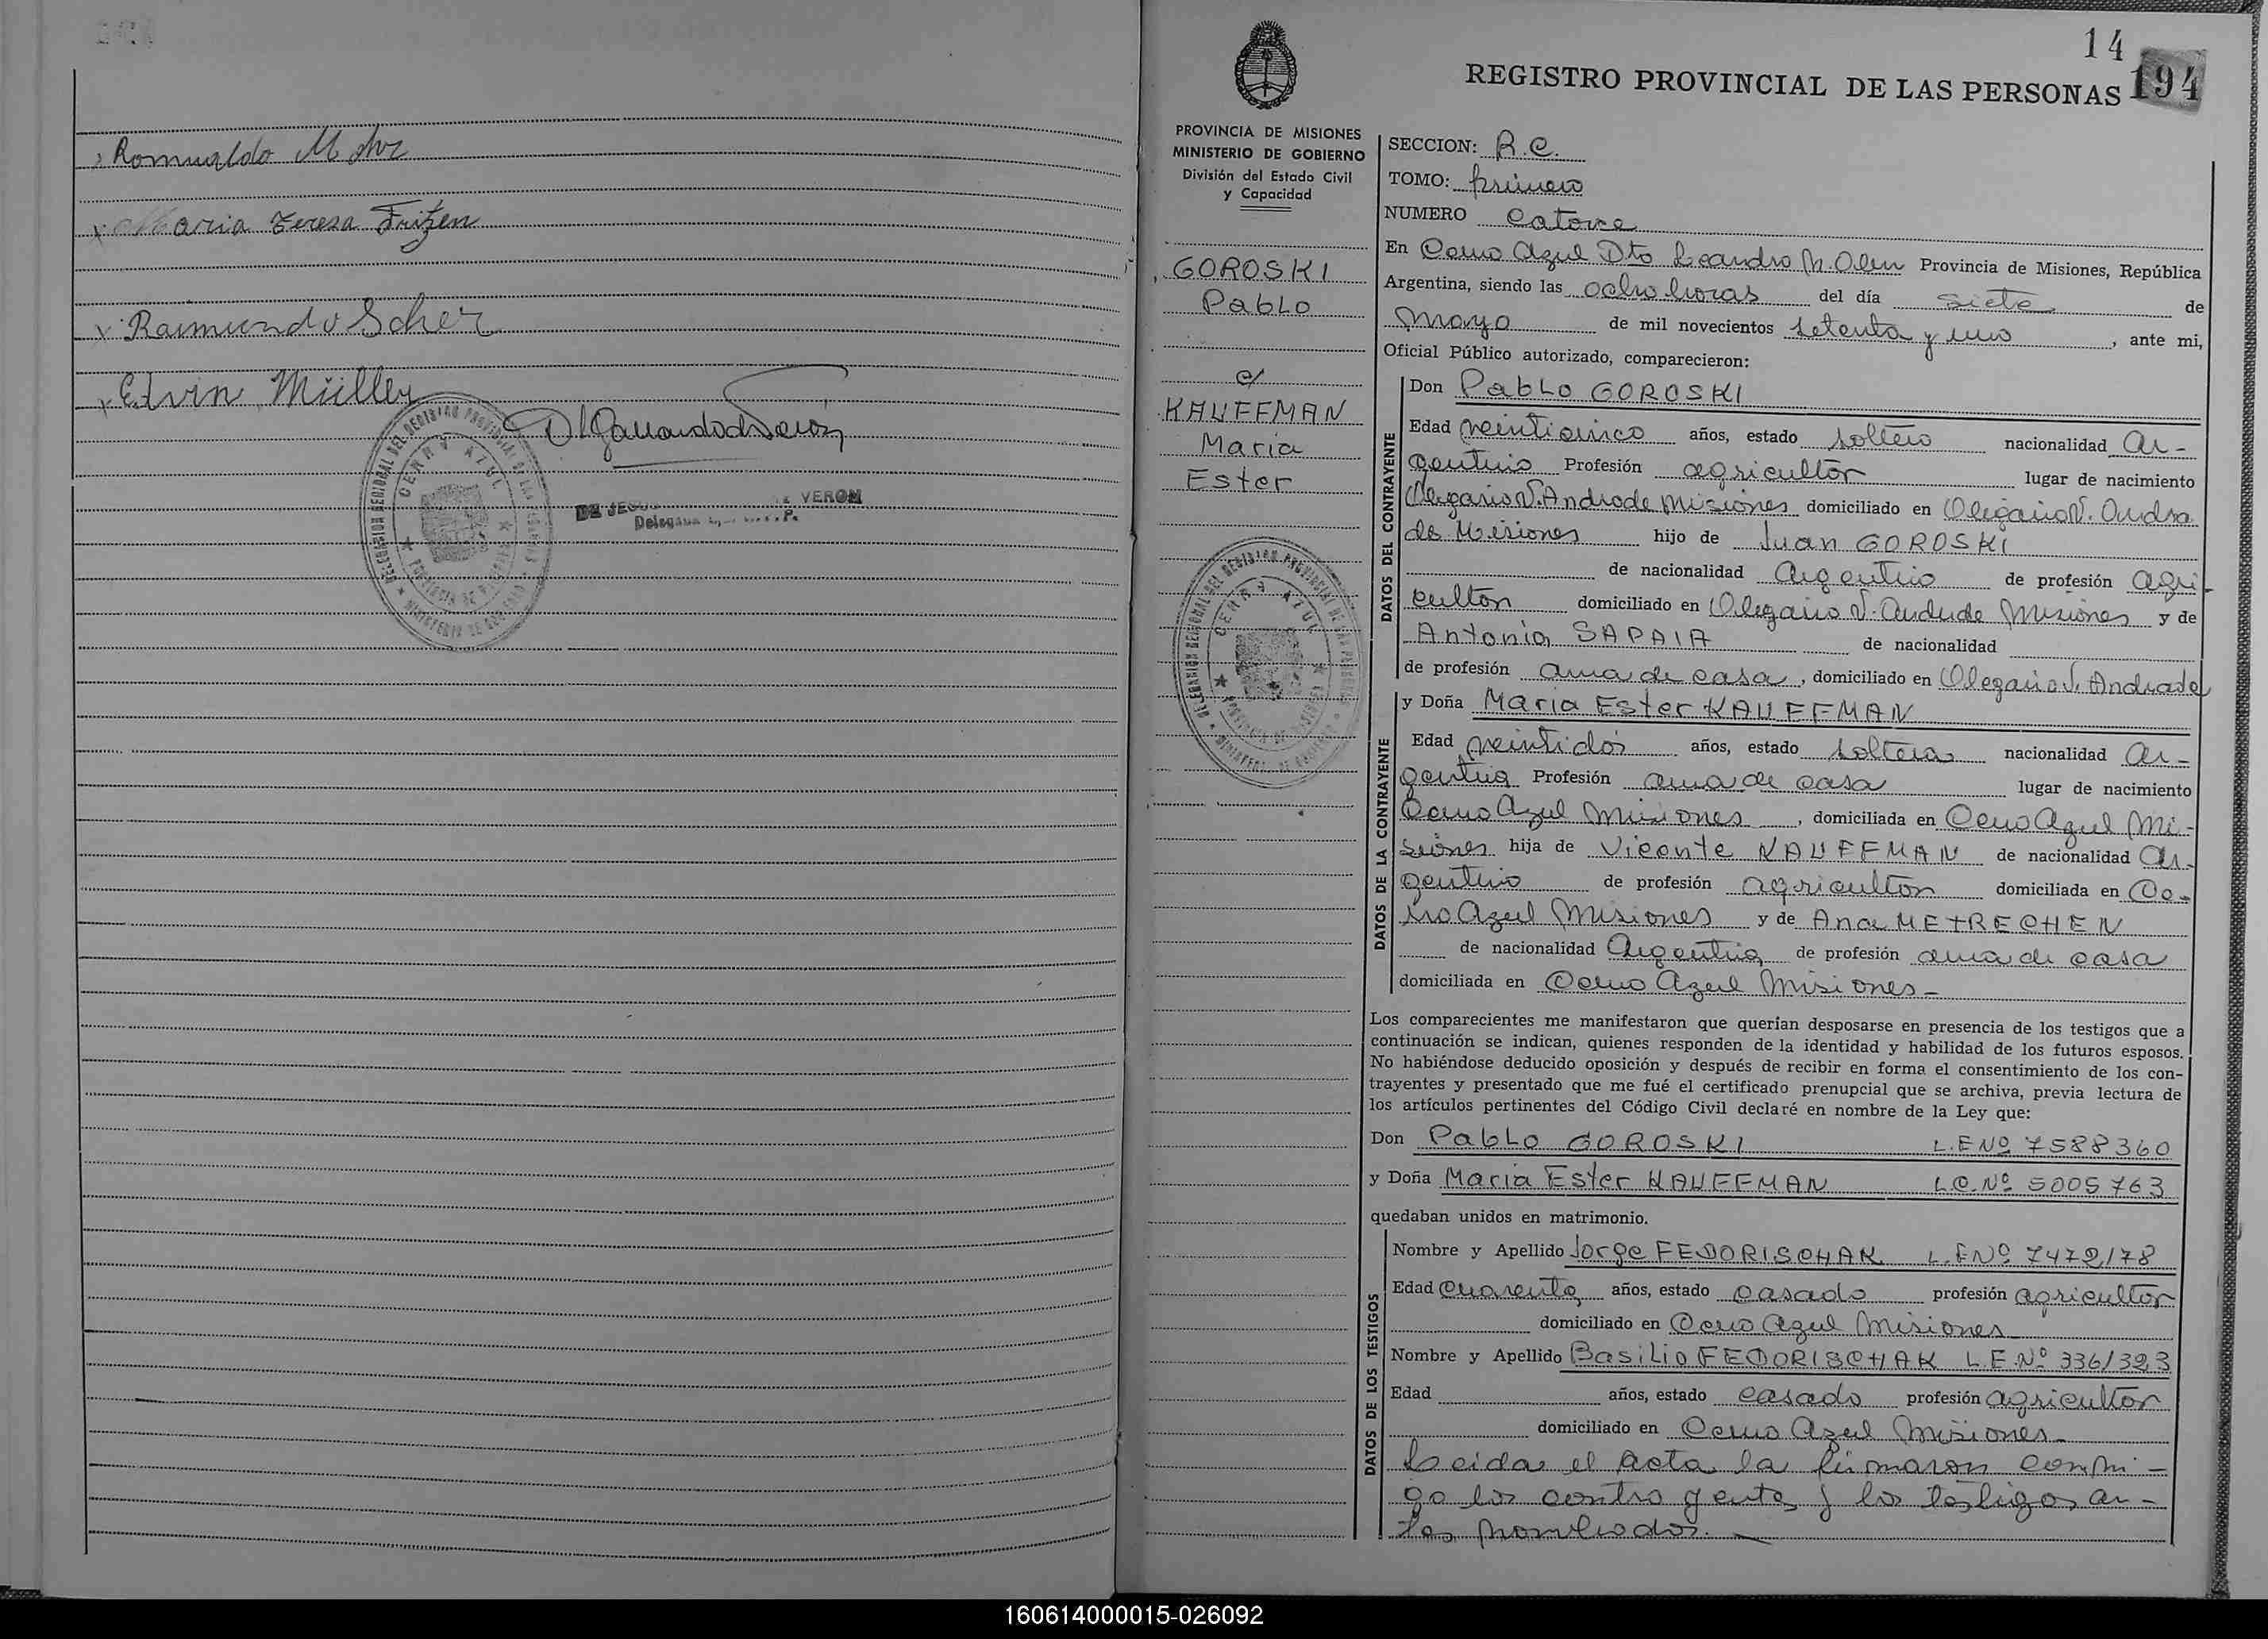 Romualdo Mohr
x Maria Teresa Fritzen
x Raimundo Scher
x Edvin Müller
DELEGACION REGIONAL DEL REGISTRO PROVINCIAL DE LAS PERSONAS
CERRO AZUL
PROVINCIA DE MISIONES
MINISTERIO DE GOBIERNO
DE JESUS VERON
14
194
REGISTRO PROVINCIAL DE LAS PERSONAS
PROVINCIA DE MISIONES
MINISTERIO DE GOBIERNO
División del Estado Civil
y Capacidad
GOROSKI
Pablo
c/
KAUFFMAN
Maria
Ester
DELEGACION REGIONAL DEL REGISTRO PROVINCIAL DE LAS PERSONAS
CERRO AZUL
PROVINCIA DE MISIONES
MINISTERIO DE GOBIERNO
SECCION: R.C.
TOMO: primero
NUMERO Catorce
En Cerro Azul Dto Leandro N. Alem Provincia de Misiones, República
Argentina, siendo las ocho horas del día siete de
Mayo de mil novecientos setenta y uno, ante mi,
Oficial Público autorizado, comparecieron:
DATOS DEL CONTRAYENTE
Don Pablo GOROSKI
Edad veinticinco años, estado soltero nacionalidad Ar-
gentino Profesión agricultor lugar de nacimiento
Olegario V. Andrade Misiones domiciliado en Olegario V. Andra
de Misiones hijo de Juan GOROSKI
de nacionalidad Argentino de profesión agri-
cultor domiciliado en Olegario V. Andrade Misiones y de
Antonia SAPAIA de nacionalidad
de profesión ama de casa, domiciliado en Olegario V. Andrade
DATOS DE LA CONTRAYENTE
y Doña Maria Ester KAUFFMAN
Edad veintidós años, estado soltera nacionalidad Ar-
gentina Profesión ama de casa lugar de nacimiento
Cerro Azul Misiones, domiciliada en Cerro Azul Mi-
siones hija de Vicente KAUFFMAN de nacionalidad Ar-
gentino de profesión agricultor domiciliada en Ce-
rro Azul Misiones y de Ana METRECHEN
de nacionalidad Argentina de profesión ama de casa
domiciliada en Cerro Azul Misiones-
Los comparecientes me manifestaron que querían desposarse en presencia de los testigos que a
continuación se indican, quienes responden de la identidad y habilidad de los futuros esposos.
No habiéndose deducido oposición y después de recibir en forma el consentimiento de los con-
trayentes y presentado que me fué el certificado prenupcial que se archiva, previa lectura de
los artículos pertinentes del Código Civil declaré en nombre de la Ley que:
Don Pablo GOROSKI L.E Nº 7588360
y Doña Maria Ester KAUFFMAN L.C. Nº 5005763
quedaban unidos en matrimonio.
DATOS DE LOS TESTIGOS
Nombre y Apellido Jorge FEDORISCHAK L.E Nº 7472178
Edad cuarenta años, estado casado profesión agricultor
domiciliado en Cerro Azul Misiones
Nombre y Apellido Basilio FEDORISCHAK L.E. Nº 3361323
Edad años, estado casado profesión agricultor
domiciliado en Cerro Azul Misiones-
Leida el Acta la firmaron conmi-
go los contrayentes y los testigos an-
tes nombrados.-
160614000015-026092